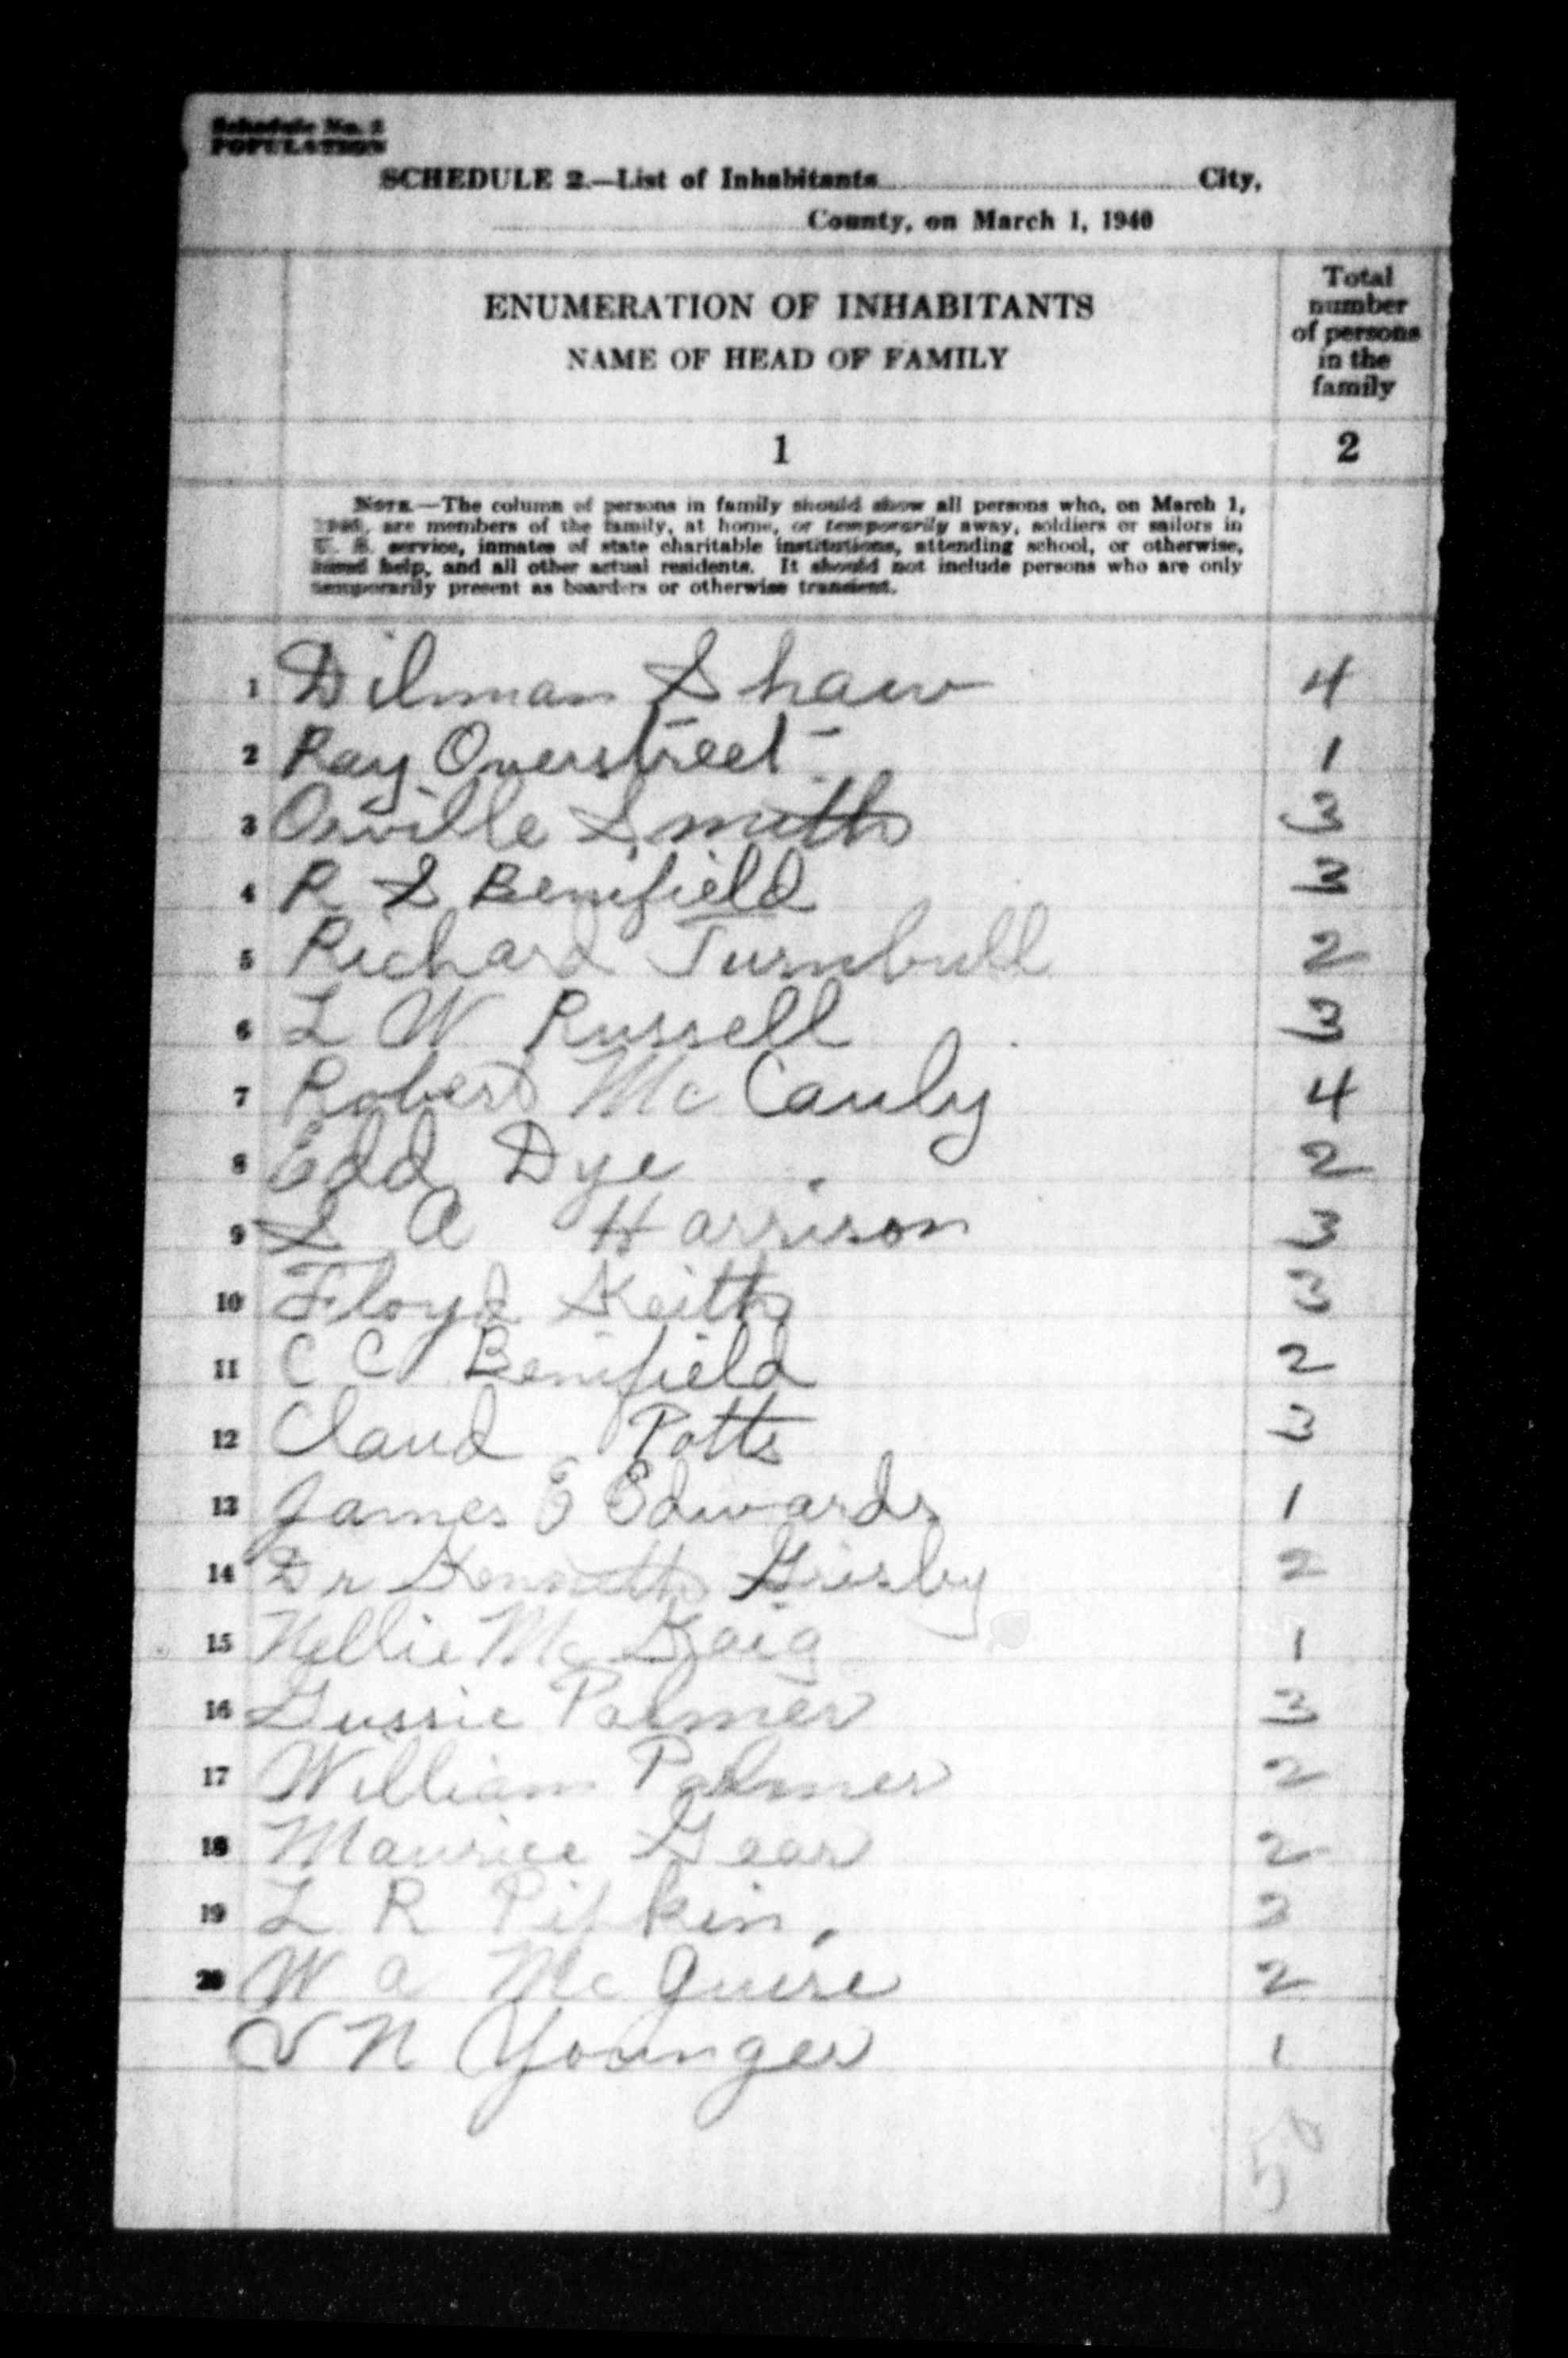 Schedule No. 2
POPULATION
SCHEDULE 2.—List of Inhabitants City,
County, on March 1, 1940
ENUMERATION OF INHABITANTS
NAME OF HEAD OF FAMILY
Total number of persons in the family
1 2
NOTE.—The column of persons in family should show all persons who, on March 1,
1940, are members of the family, at home, or temporarily away, soldiers or sailors in
U. S. service, inmates of state charitable institutions, attending school, or otherwise,
hired help, and all other actual residents. It should not include persons who are only
temporarily present as boarders or otherwise transient.
1 Dilman Shaw 4
2 Ray Overstreet 1
3 Orville Smith 3
4 R S Benifield 3
5 Richard Turnbull 2
6 L W Russell 3
7 Robert Mc Cauly 4
8 Edd Dye 2
9 S A Harrison 3
10 Floyd Keith 3
11 C C Benifield 2
12 Claud Potts 3
13 James E Edwards 1
14 Dr Kenneth Grisby 2
15 Nellie Mc Kaig 1
16 Gussie Palmer 3
17 William Palmer 2
18 Maurice Gear 2
19 L R Pipkin
20 W a Mc Guire 2
V N Younger 1
50